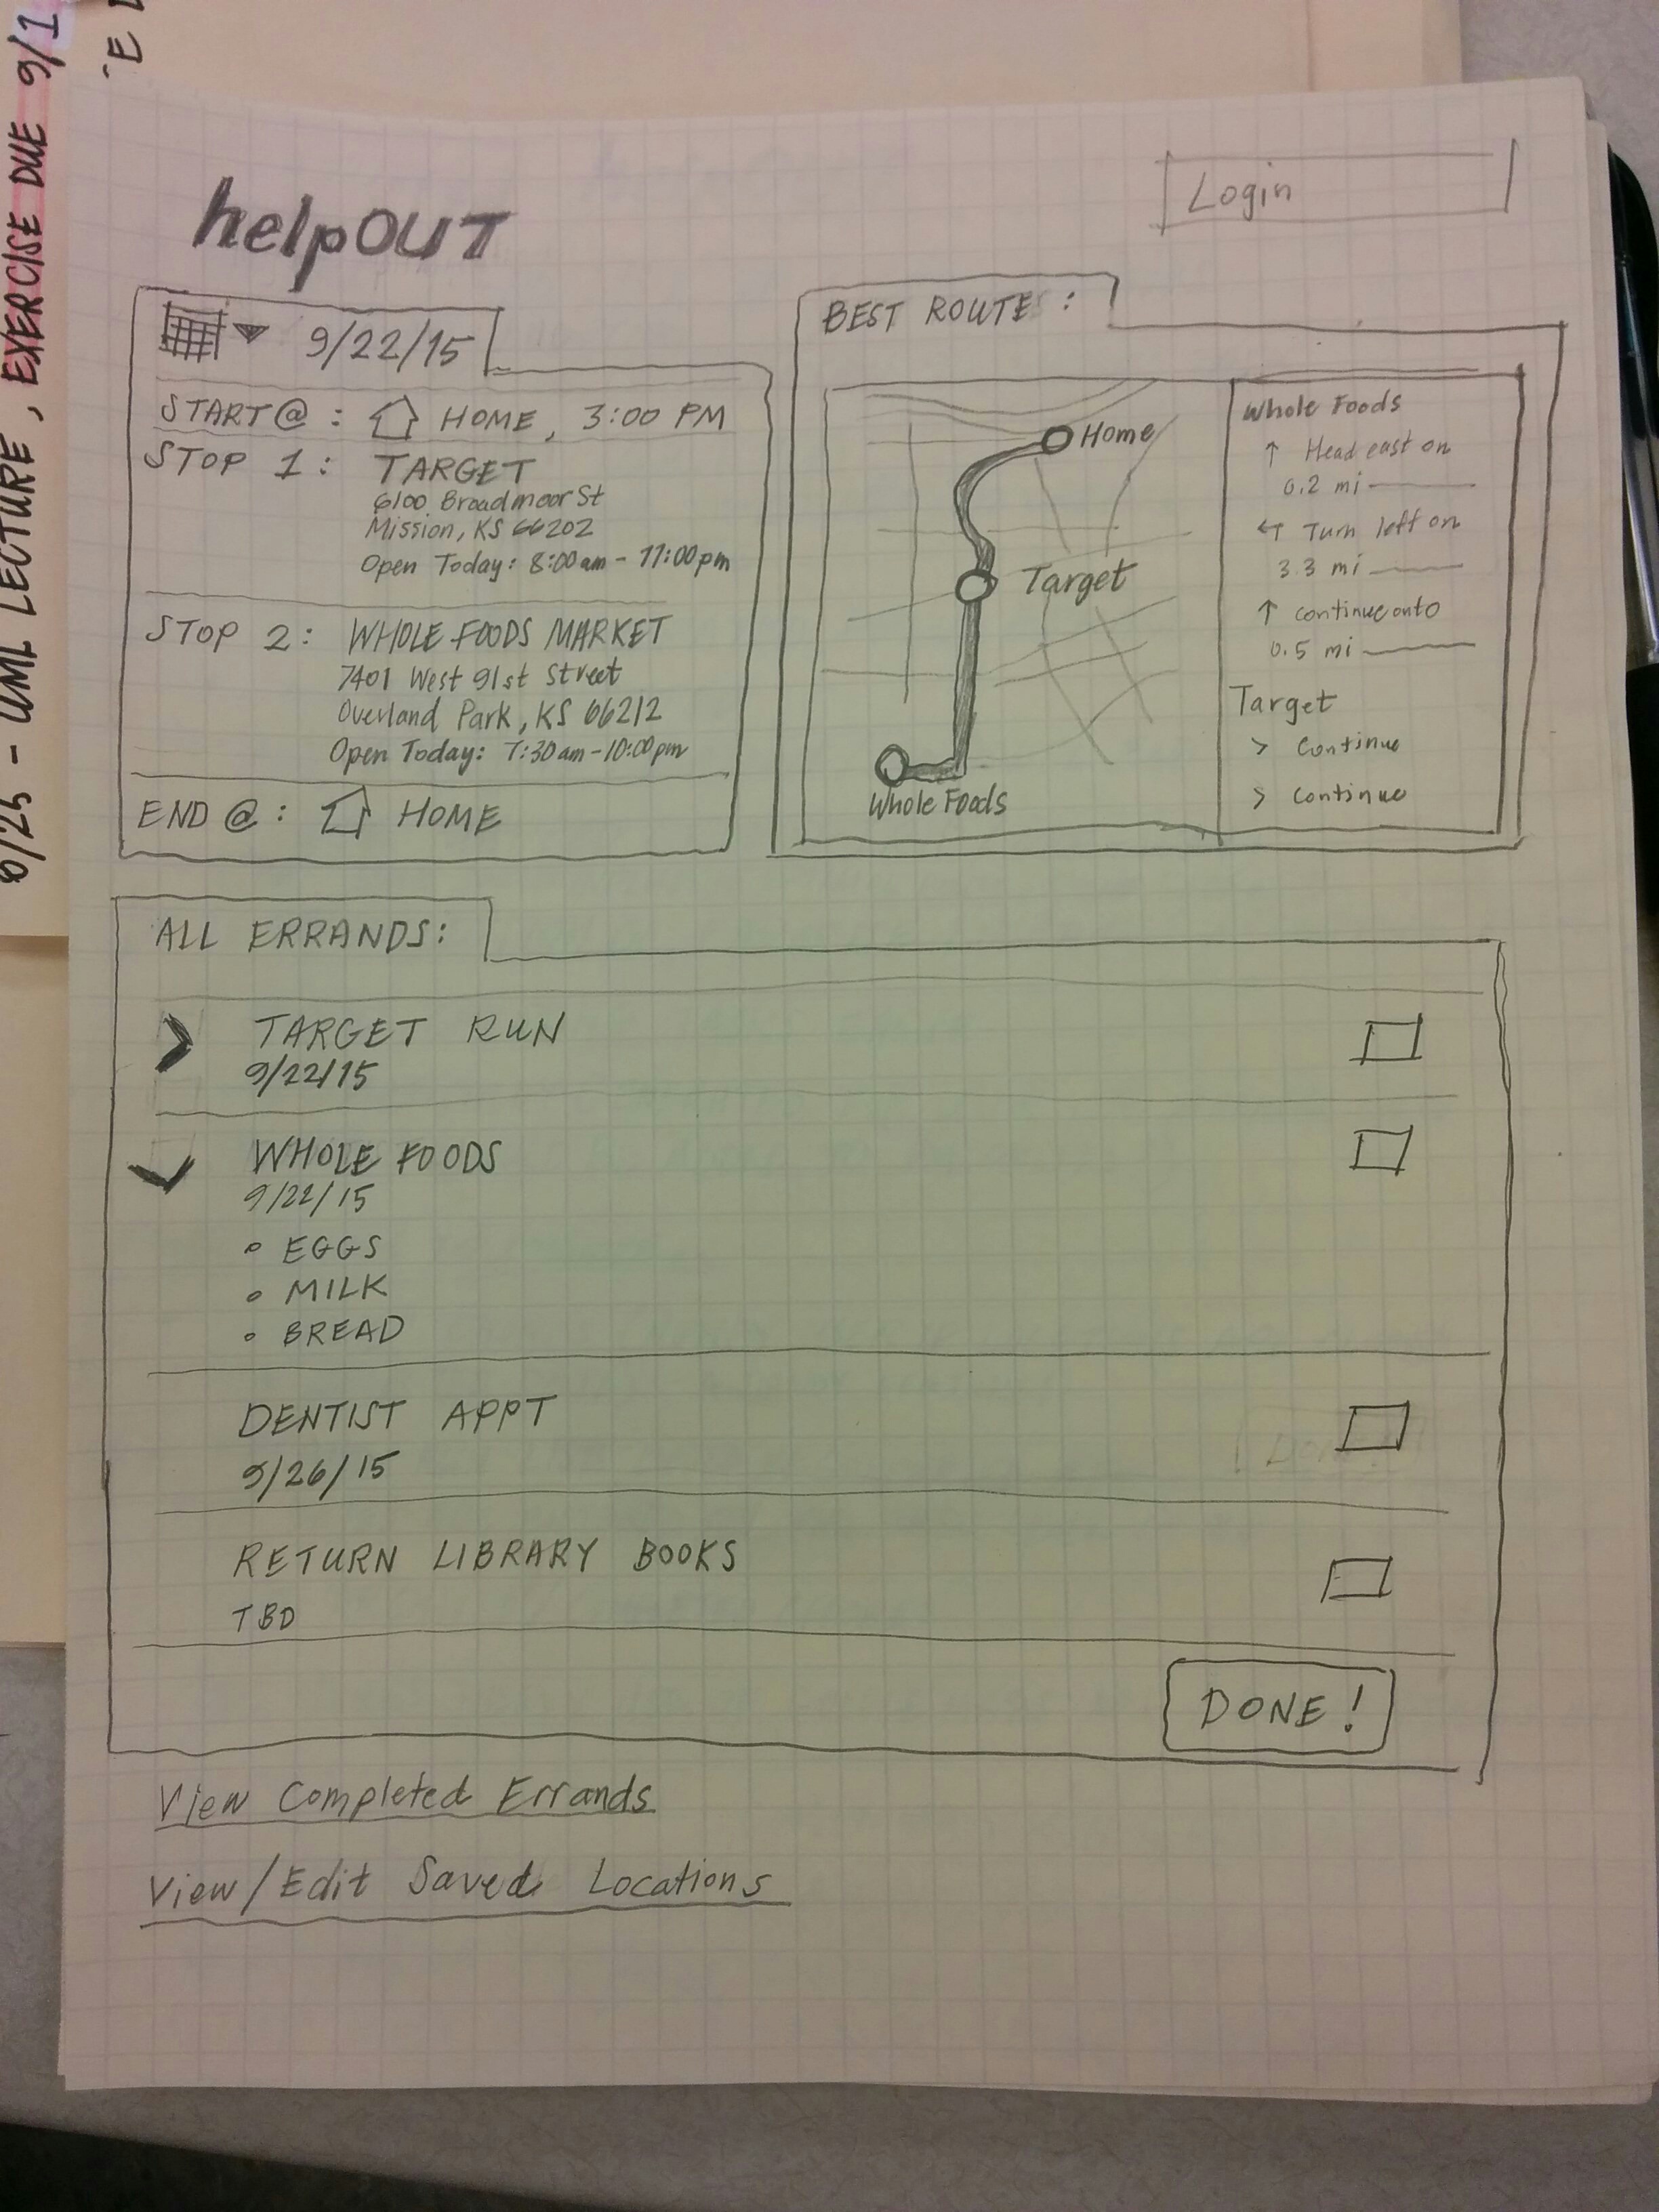 6/25 - UML LECTURE, EXERCISE DUE 9/1
helpOUT
Login
9/22/15
START@: HOME, 3:00 PM
STOP 1: TARGET
6100 Broadmoor St
Mission, KS 66202
Open Today: 8:00am - 11:00pm
STOP 2: WHOLE FOODS MARKET
7401 West 91st Street
Overland Park, KS 66212
Open Today: 7:30am - 10:00pm
END @: HOME
BEST ROUTE:
Home
Target
Whole Foods
Whole Foods
↑ Head east on
0.2 mi
↰ Turn left on
3.3 mi
↑ continue onto
0.5 mi
Target
> Continue
> Continue
ALL ERRANDS:
TARGET RUN
9/22/15
WHOLE FOODS
9/22/15
• EGGS
• MILK
• BREAD
DENTIST APPT
9/26/15
RETURN LIBRARY BOOKS
TBD
DONE!
View Completed Errands
View/Edit Saved Locations